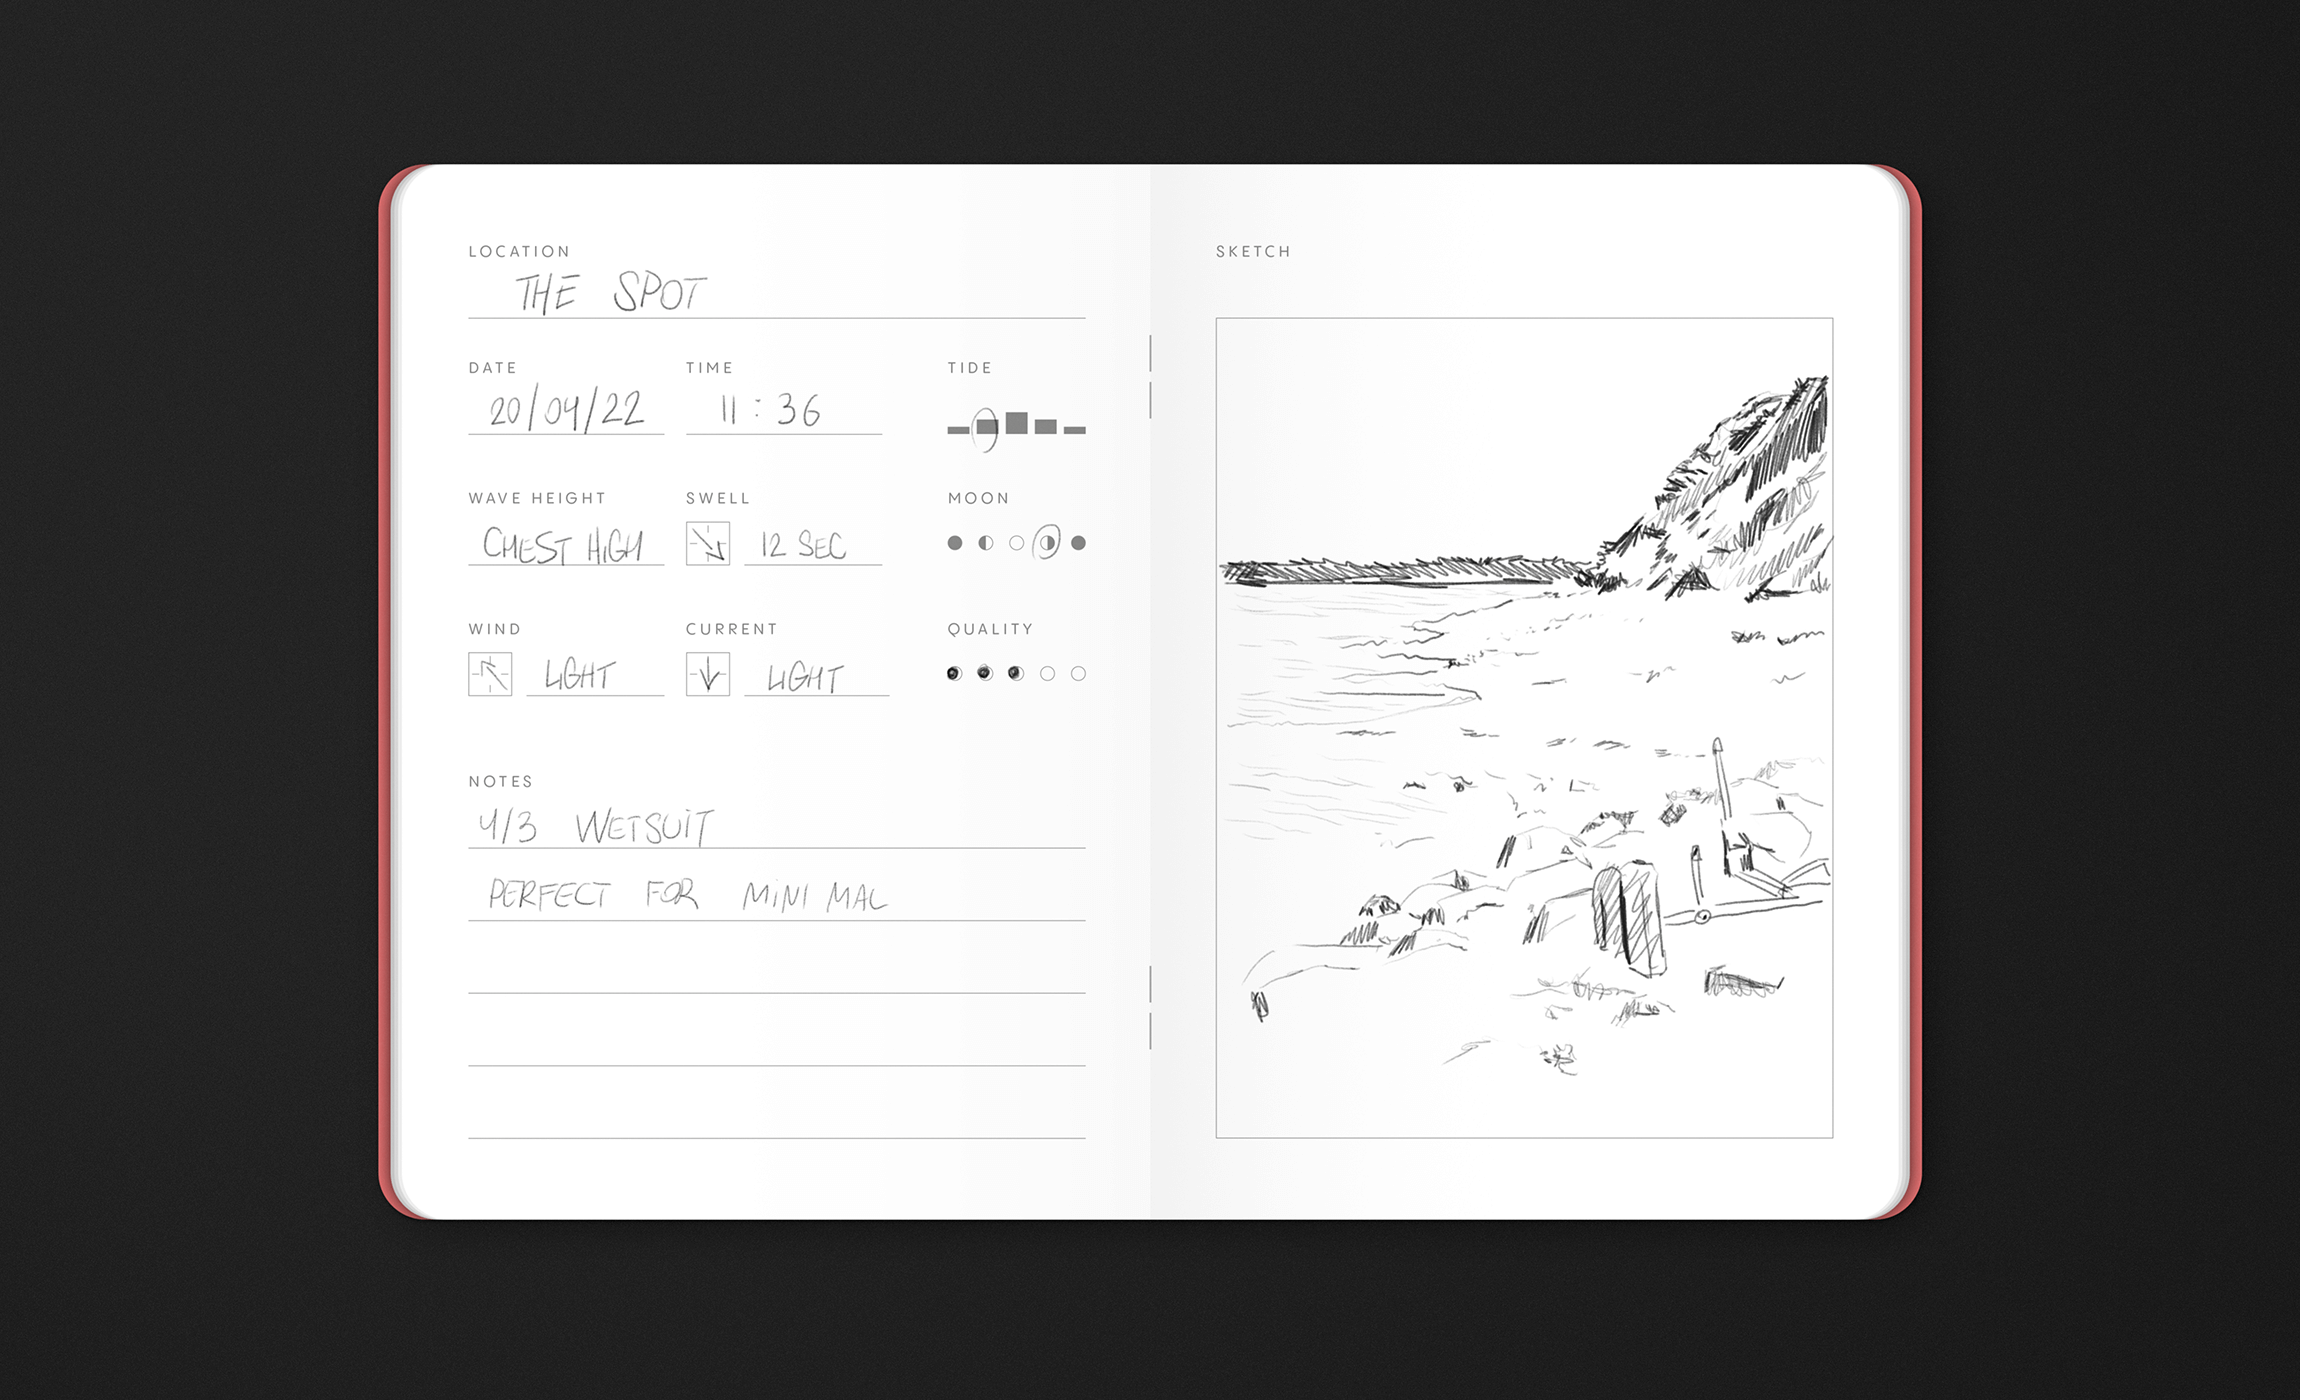 LOCATION
THE SPOT
DATE TIME TIDE
20/04/22 11:36
WAVE HEIGHT SWELL MOON
CHEST HIGH 12 SEC
WIND CURRENT QUALITY
LIGHT LIGHT
NOTES
4/3 WETSUIT
PERFECT FOR MINI MAL
SKETCH